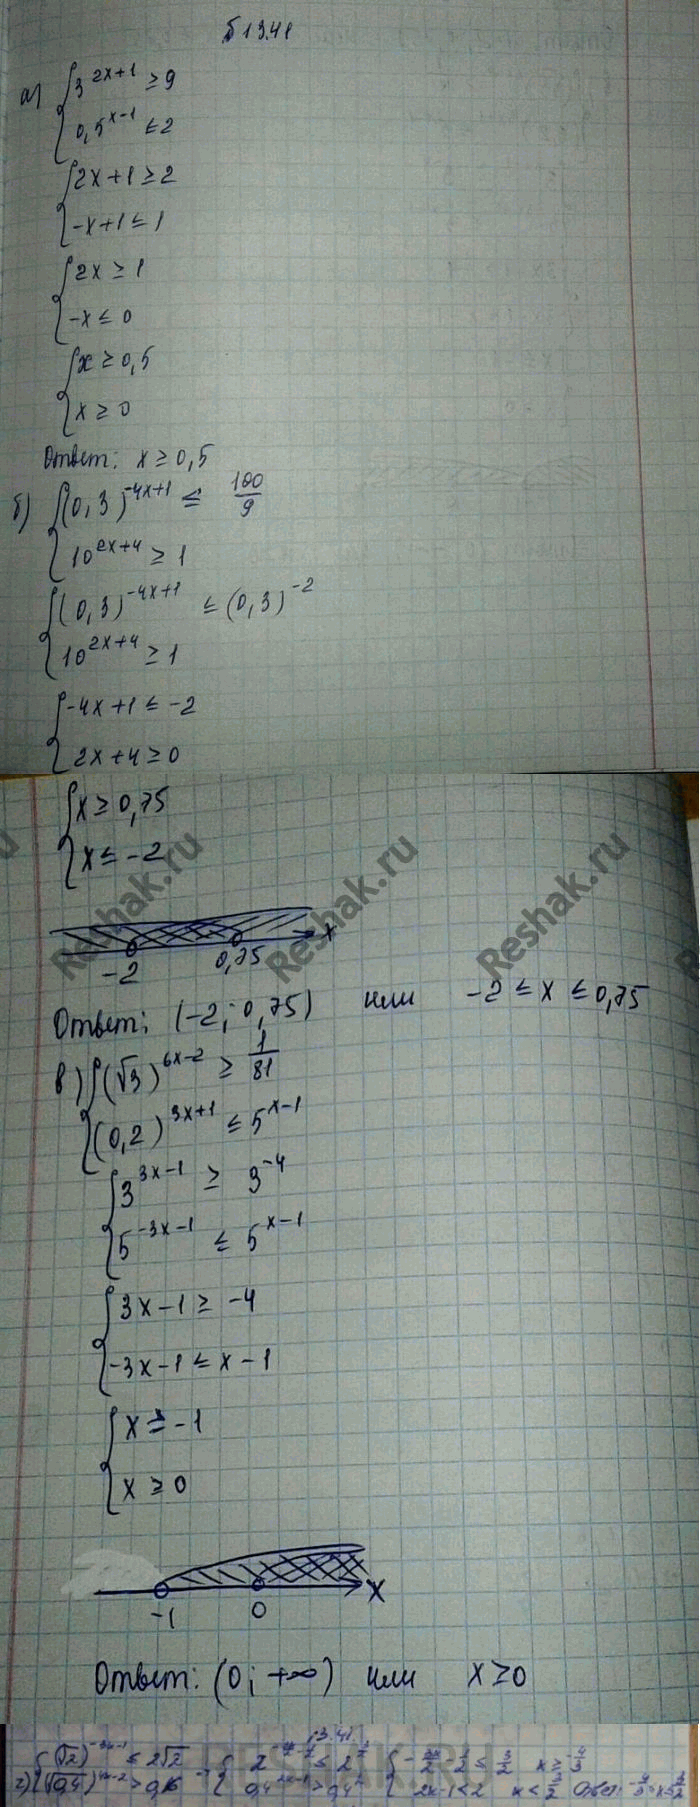 § 13.41
а) { 3^{2x+1} ≥ 9
0,5^{x-1} ≤ 2
{ 2x+1 ≥ 2
-x+1 ≤ 1
{ 2x ≥ 1
-x ≤ 0
{ x ≥ 0,5
x ≥ 0
Ответ: x ≥ 0,5
б) { (0,3)^{-4x+1} ≤ 100/9
10^{2x+4} ≥ 1
{ (0,3)^{-4x+1} ≤ (0,3)^{-2}
10^{2x+4} ≥ 1
{ -4x+1 ≤ -2
2x+4 ≥ 0
{ x ≥ 0,75
x ≤ -2
Reshak.ru Reshak.ru Reshak.ru
-2 0,75 x
Ответ: (-2; 0,75) или -2 ≤ x ≤ 0,75
в) { (√3)^{6x-2} ≥ 1/81
(0,2)^{3x+1} ≤ 5^{x-1}
{ 3^{3x-1} ≥ 3^{-4}
5^{-3x-1} ≤ 5^{x-1}
{ 3x-1 ≥ -4
-3x-1 ≤ x-1
{ x ≥ -1
x ≥ 0
-1 0 x
Ответ: (0; +∞) или x ≥ 0
13.41.
RESHAK.RU
г) { (√2)^{-3x-1} ≤ 2√2